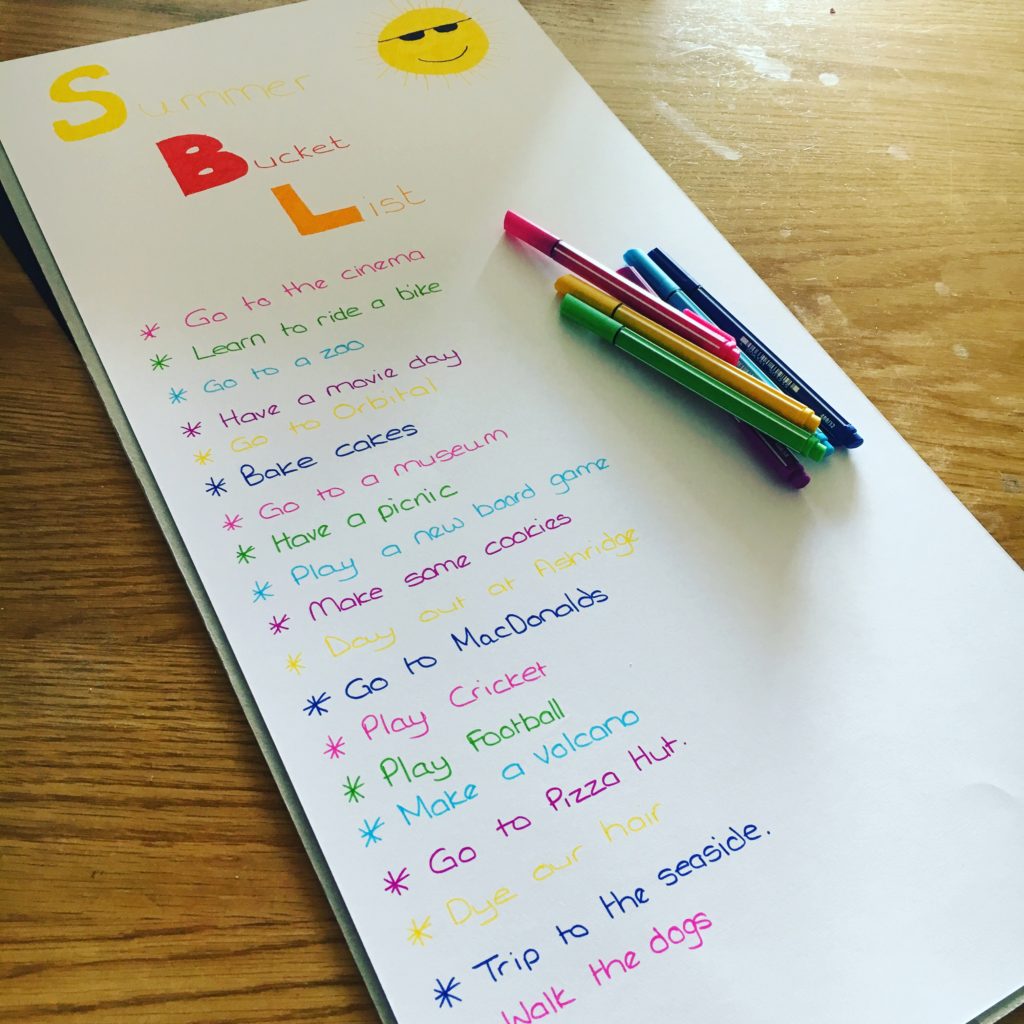 Summer
Bucket
List
* Go to the cinema
* Learn to ride a bike
* Go to a zoo
* Have a movie day
* Go to Orbital
* Bake cakes
* Go to a museum
* Have a picnic
* Play a new board game
* Make some cookies
* Day out at Ashridge
* Go to MacDonalds
* Play Cricket
* Play Football
* Make a volcano
* Go to Pizza Hut.
* Dye our hair
* Trip to the seaside.
Walk the dogs